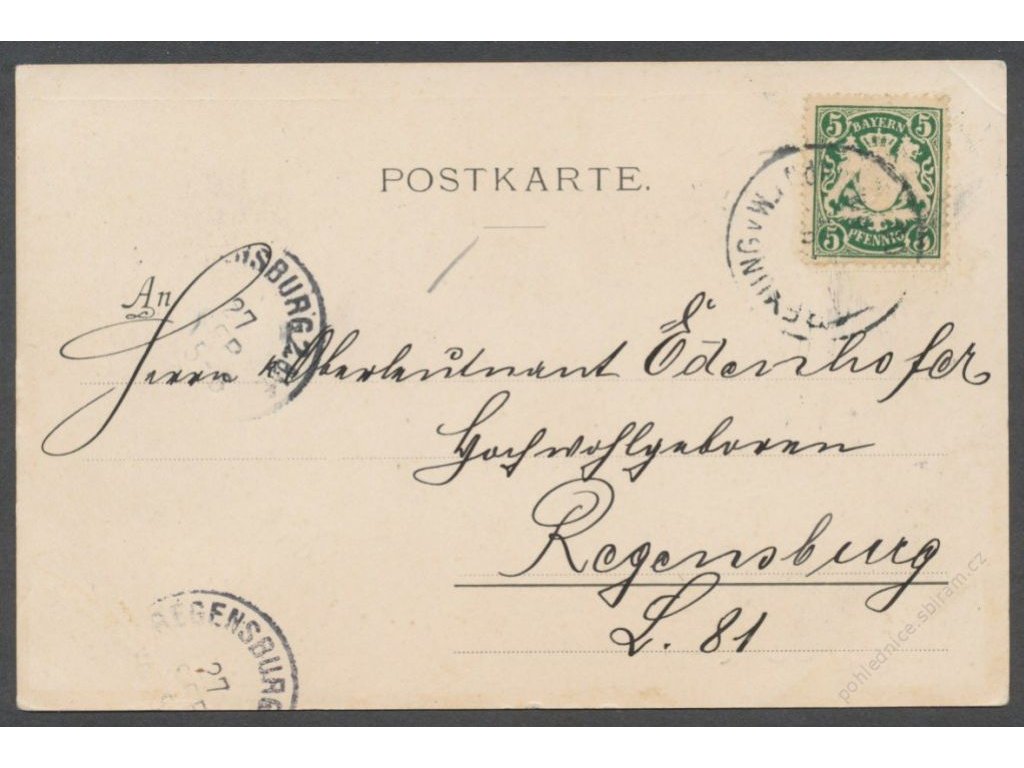 5 BAYERN 5
5 PFENNIG 5
POSTKARTE.
NSBURG 2
27
SEP
An
Herrn Oberleutnant Edenhofer
Hochwohlgeboren
Regensburg
L. 81
REGENSBURG
27
SEP
pohlednice.sbiram.cz